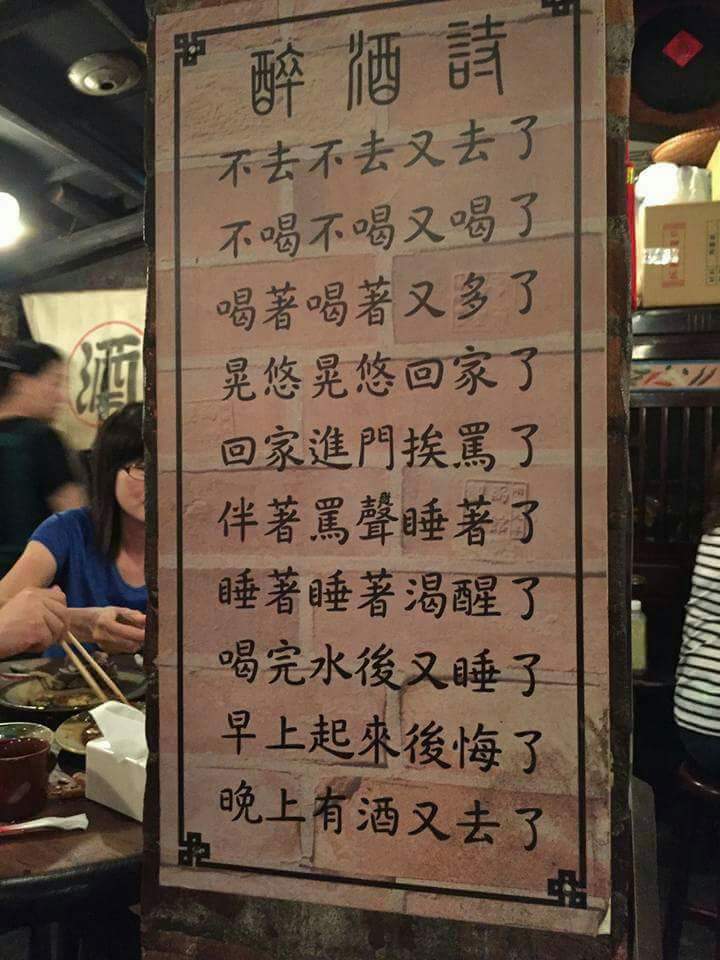 醉酒詩
不去不去又去了
不喝不喝又喝了
喝著喝著又多了
晃悠晃悠回家了
回家進門挨罵了
伴著罵聲睡著了
睡著睡著渴醒了
喝完水後又睡了
早上起來後悔了
晚上有酒又去了
酒